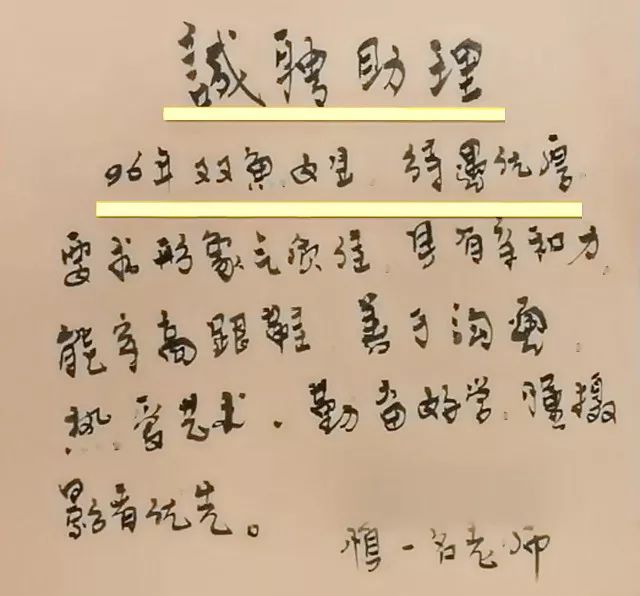 誠聘助理
96年双鱼女星。待遇优厚。
要求形象气质佳。具有亲和力。
能穿高跟鞋 善于沟通。
热爱艺术。勤奋好学。懂摄
影者优先。
一名老师